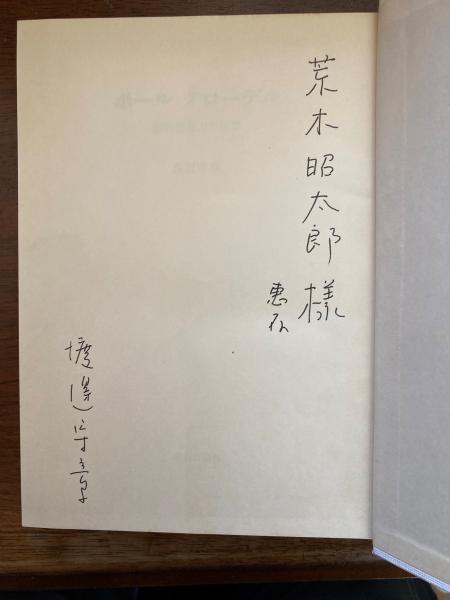 荒木昭太郎様
恵存
渡邊守章
ポール クローデル